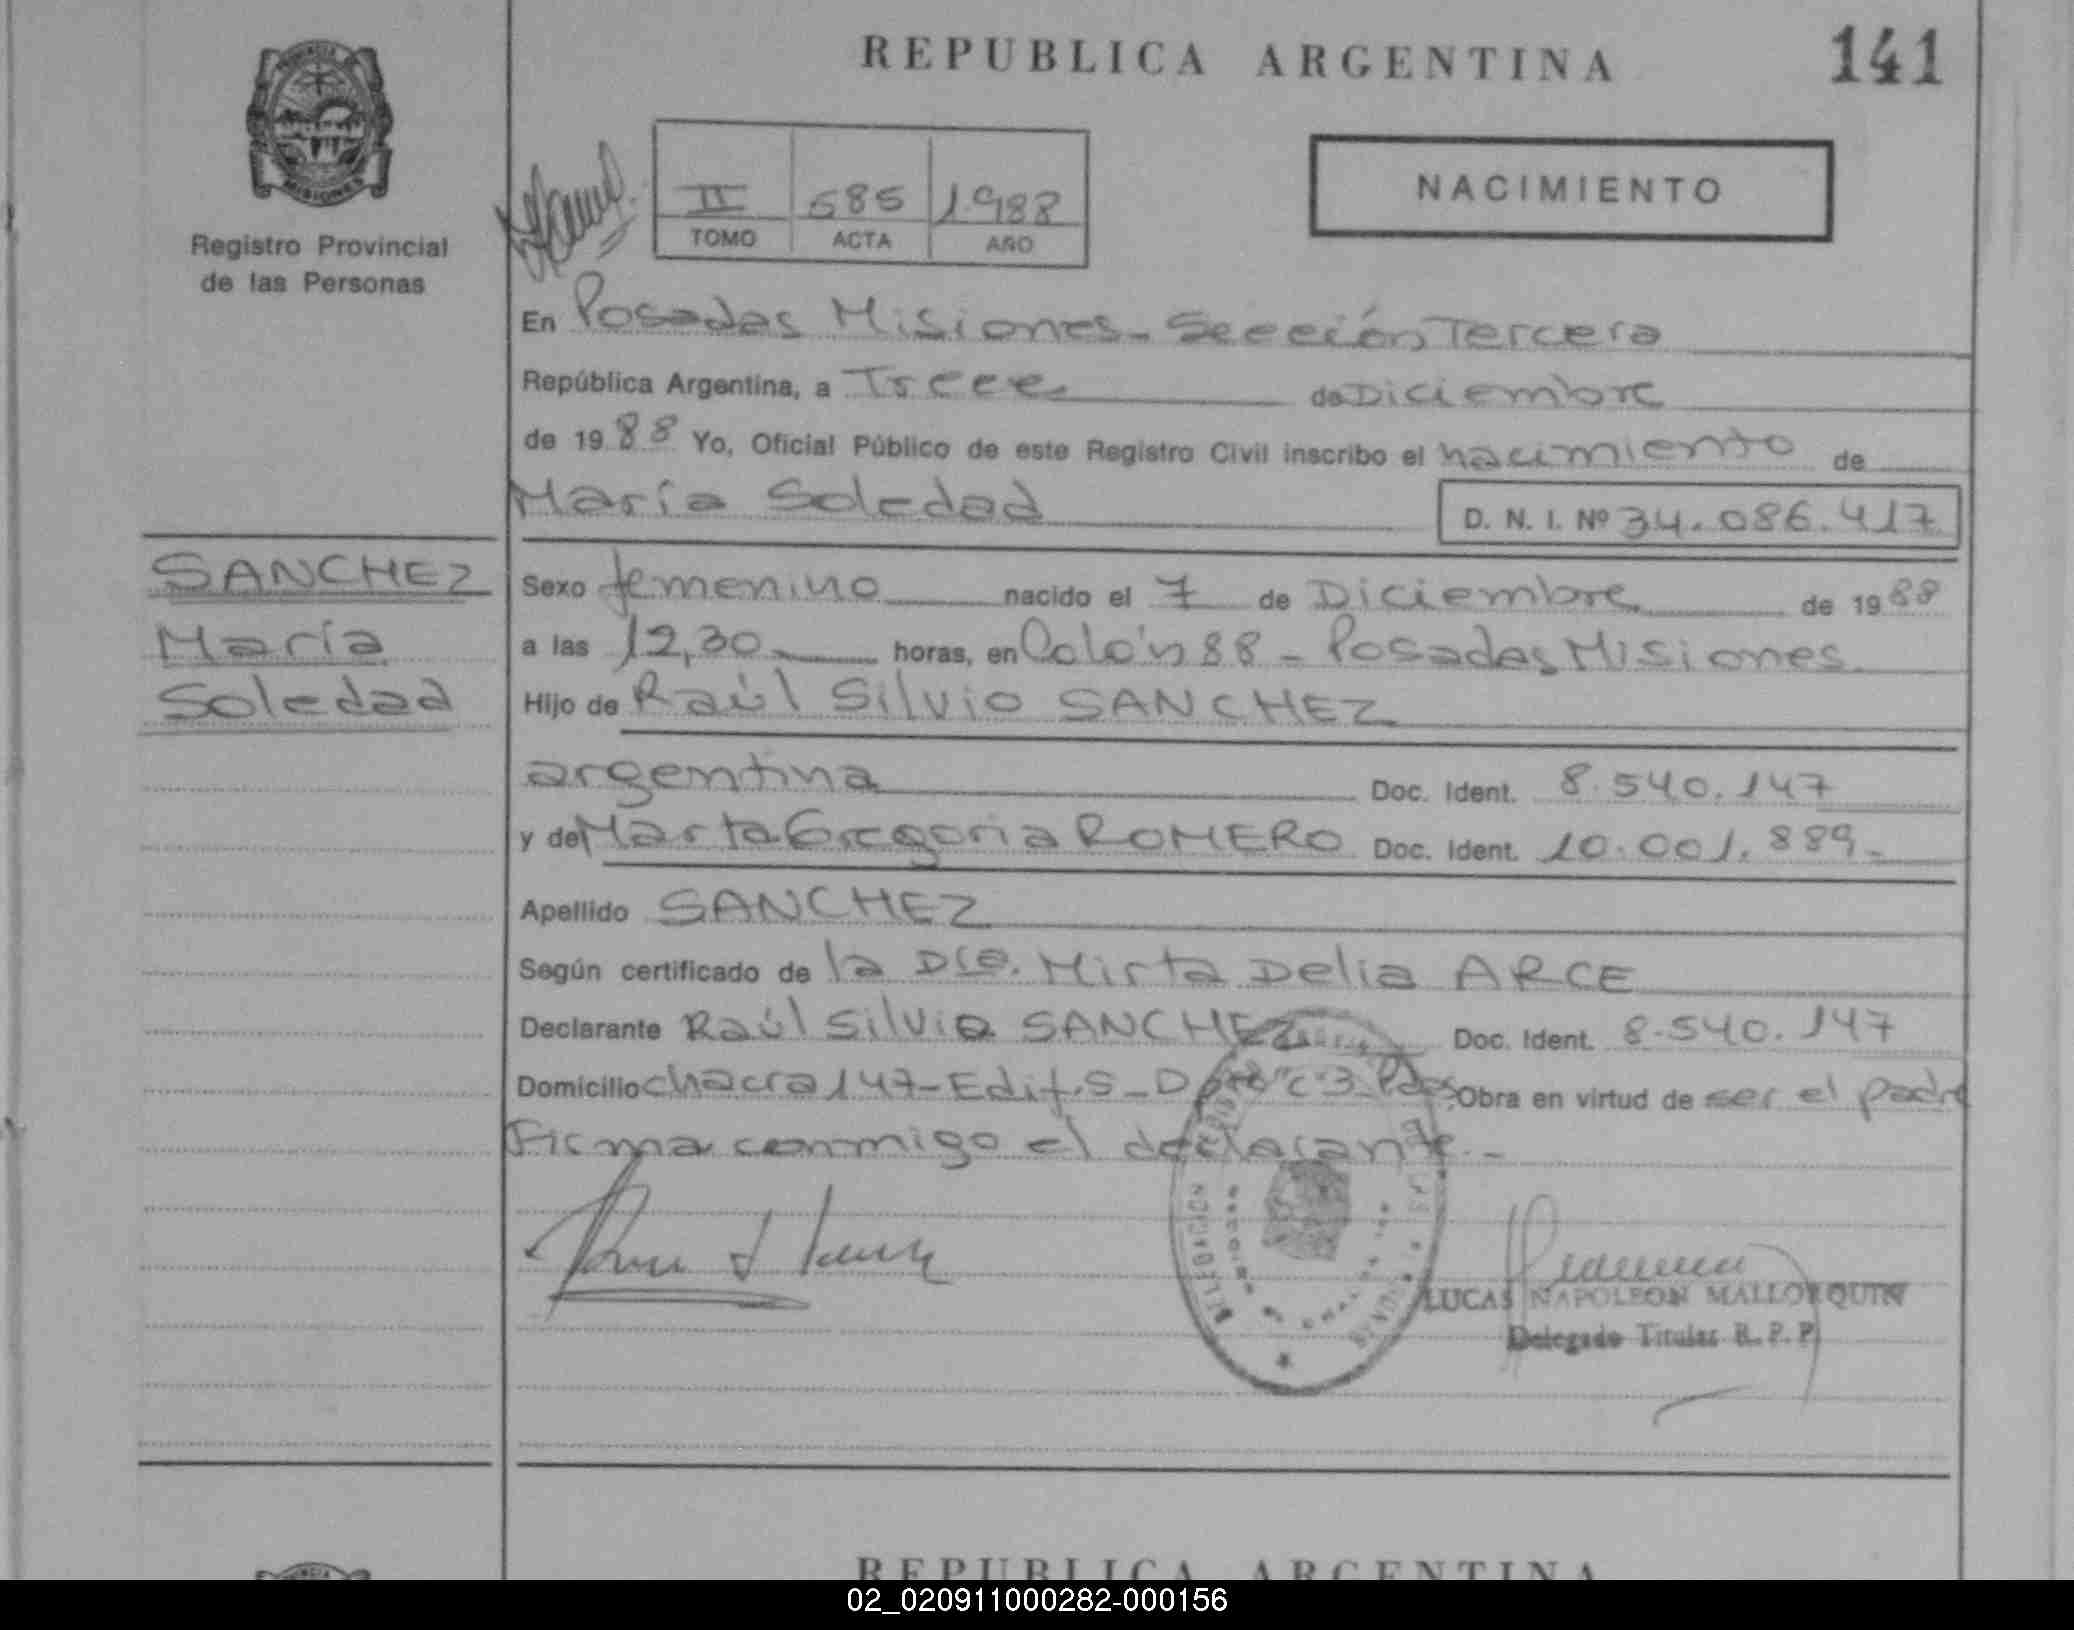 REPUBLICA ARGENTINA
141
PROVINCIA
MISIONES
Registro Provincial
de las Personas
II 585 1.988
TOMO ACTA AÑO
NACIMIENTO
En Posadas Misiones - Sección Tercera
República Argentina, a Trece de Diciembre
de 1988 Yo, Oficial Público de este Registro Civil inscribo el nacimiento de
María Soledad D. N. I. Nº 34.086.417
SANCHEZ
María
Soledad
Sexo femenino nacido el 7 de Diciembre de 1988
a las 12,30 horas, en Colón 88 - Posadas Misiones
Hijo de Raúl Silvio SANCHEZ
argentina Doc. Ident. 8.540.147
y de Marta Gregoria ROMERO Doc. Ident. 10.001.889-
Apellido SANCHEZ
Según certificado de la Dra. Mirta Delia ARCE
Declarante Raúl Silvio SANCHEZ Doc. Ident. 8.540.147
Domicilio chacra 147-Edif.5-Dpto "C" 3-Pdas Obra en virtud de ser el padre
Firma conmigo el declarante.-
DELEGACION
LUCAS NAPOLEON MALLORQUIN
Delegado Titular R. P. P.
REPUBLICA ARGENTINA
02_020911000282-000156